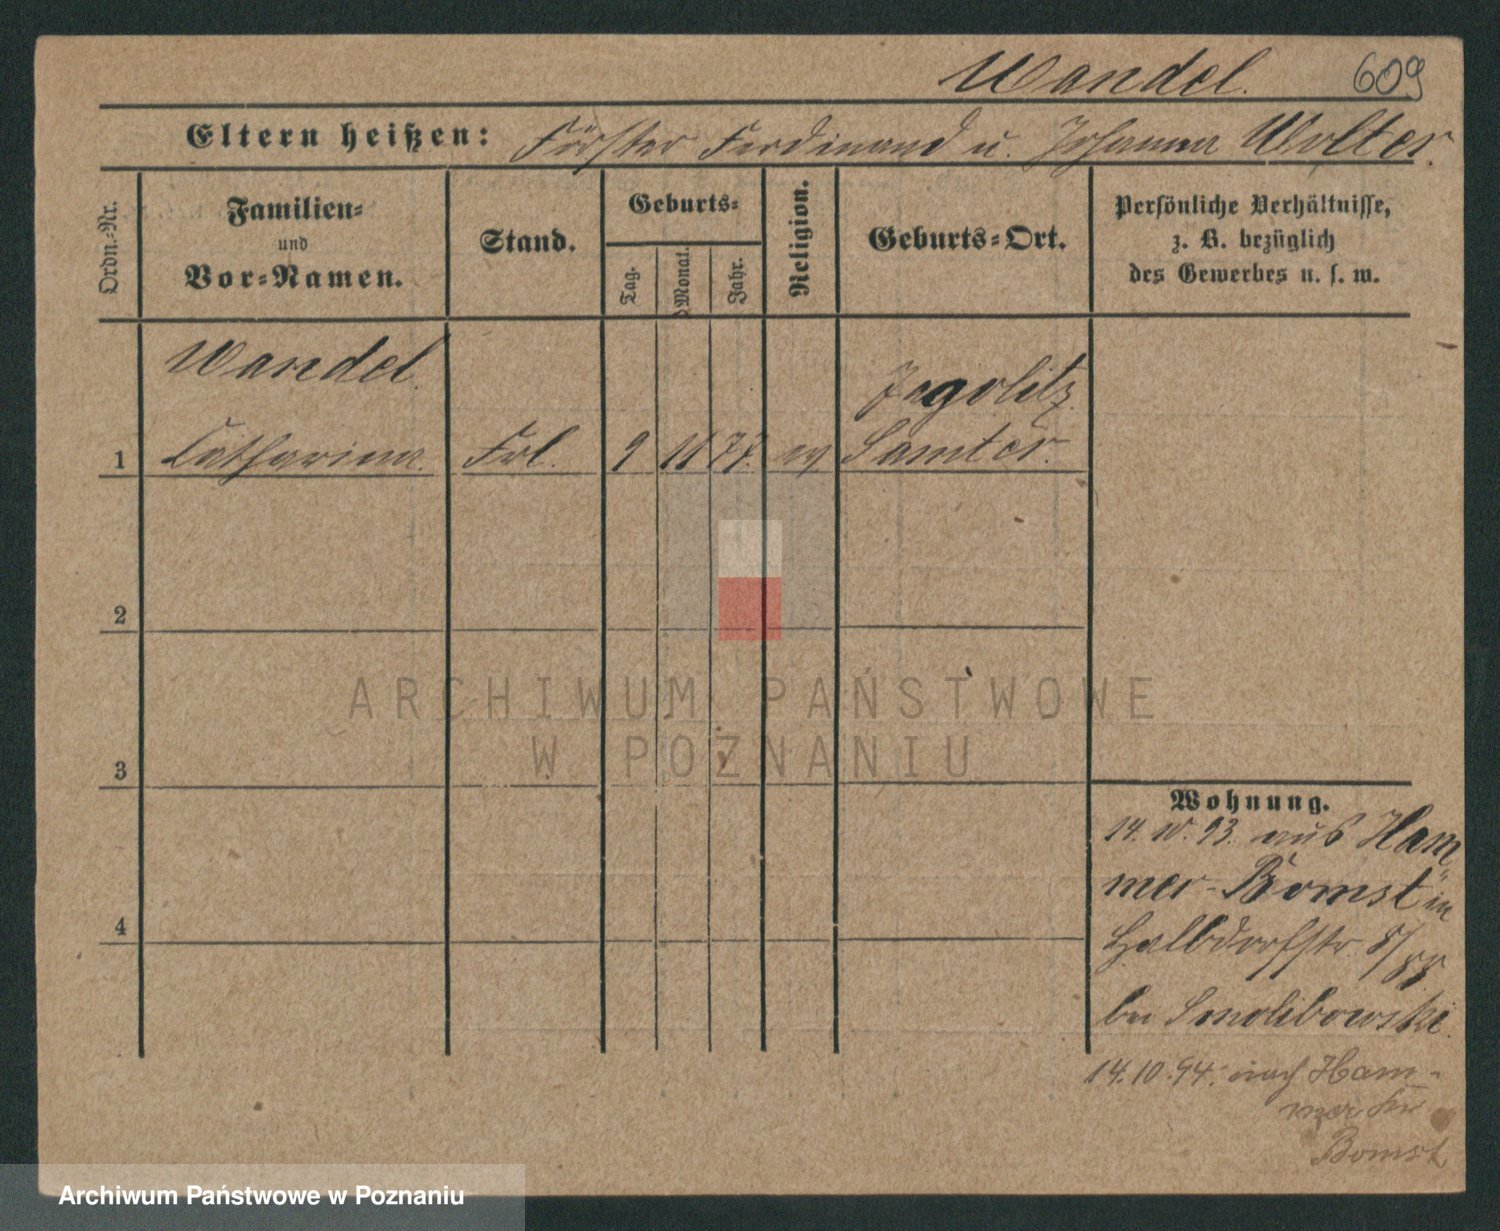 Wandel. 609
Eltern heißen: Förster Ferdinand u. Johanna Wolter.
Ordn.-Nr.
Familien-
und
Vor-Namen.
Stand.
Geburts-
Tag.
Monat.
Jahr.
Religion.
Geburts-Ort.
Persönliche Verhältnisse,
z. B. bezüglich
des Gewerbes u. s. w.
Wandel.
Jagolitz
1 Catharina. Frl. 9 11 77. ev Samter.
2
3
4
Wohnung.
14.10.93. aus Ham
mer-Bomst in
Halbdorfstr. 8/
bei Smolibowski.
14.10.94. nach Ham-
mer
Bomst
ARCHIWUM PAŃSTWOWE
W POZNANIU
Archiwum Państwowe w Poznaniu